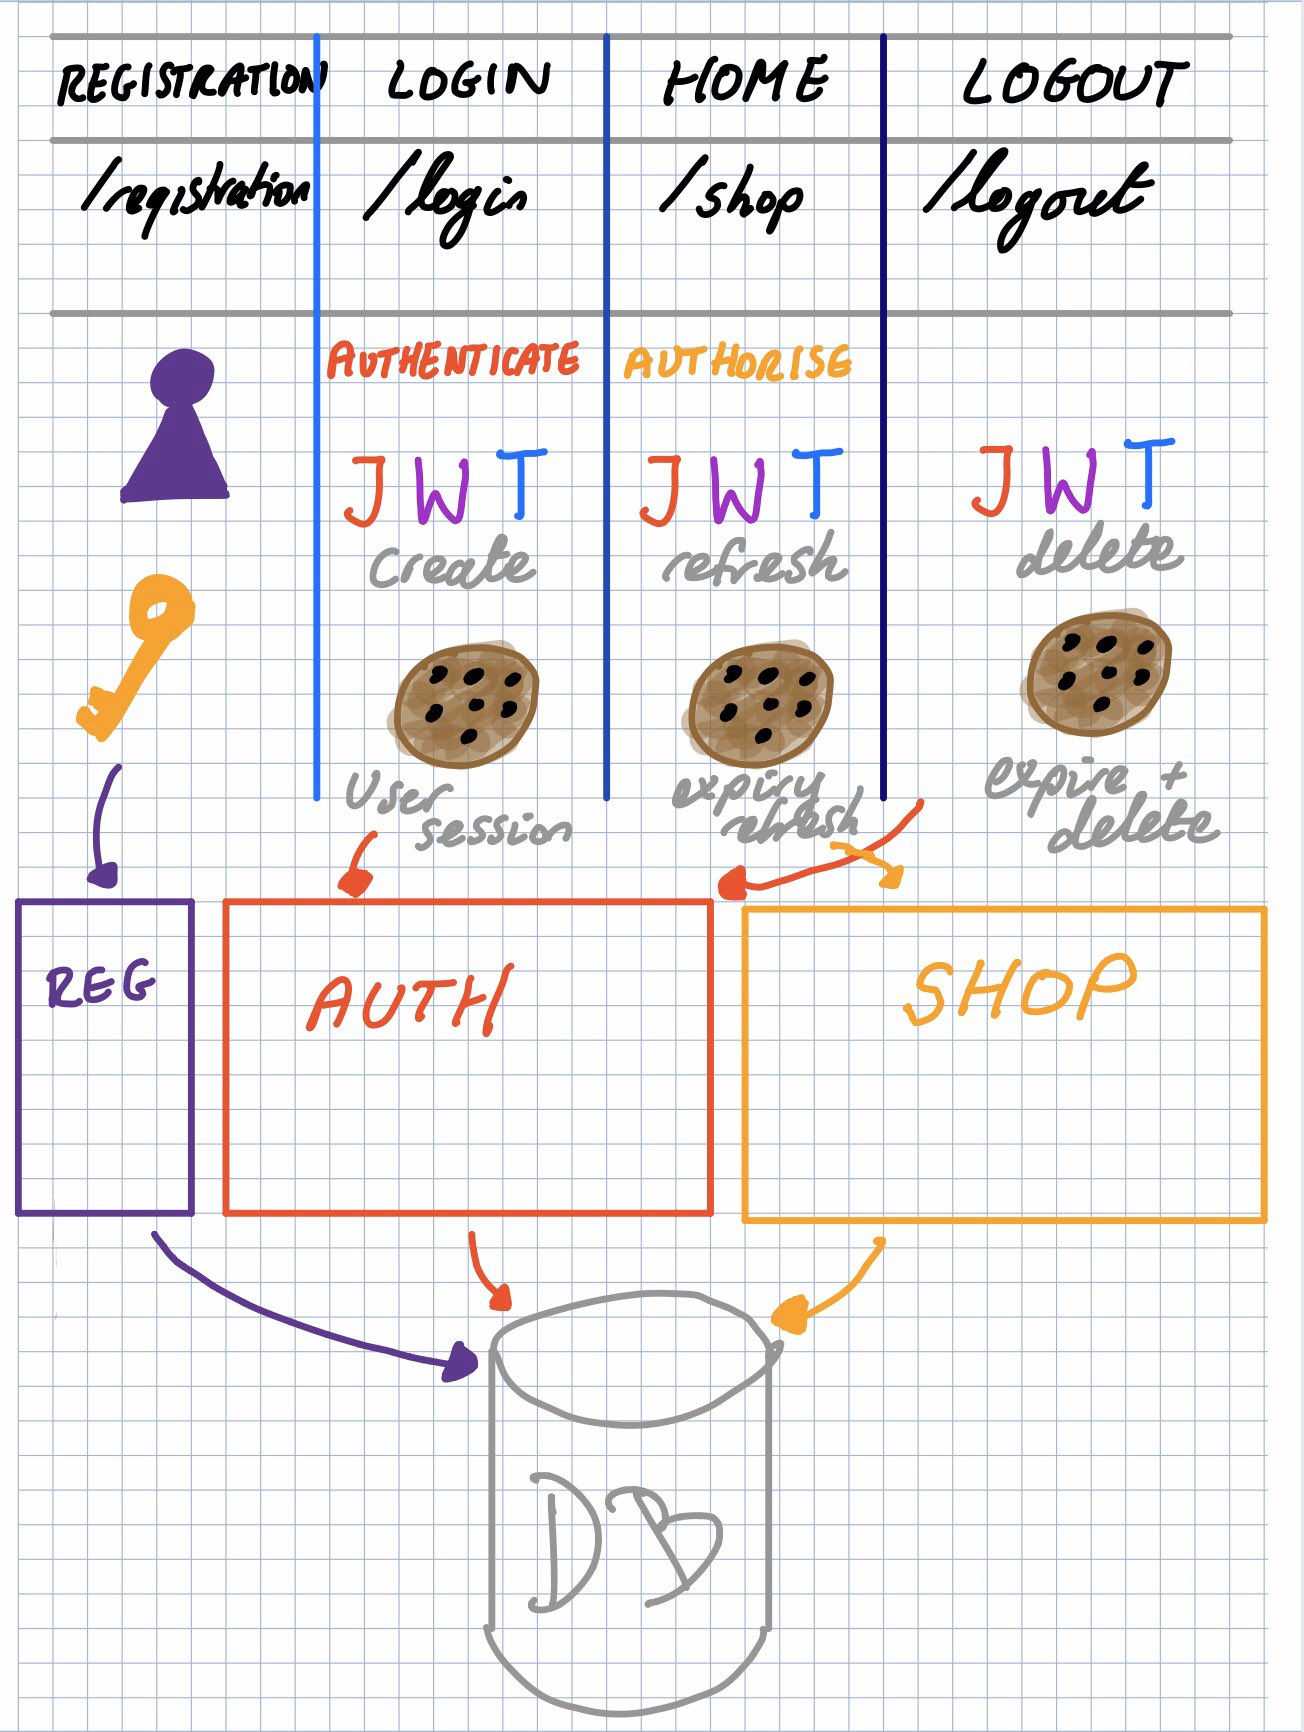 REGISTRATION LOGIN HOME LOGOUT
/registration /login /shop /logout
AUTHENTICATE AUTHORISE
JWT JWT JWT
create refresh delete
User session
expiry refresh
expire + delete
REG AUTH SHOP
DB